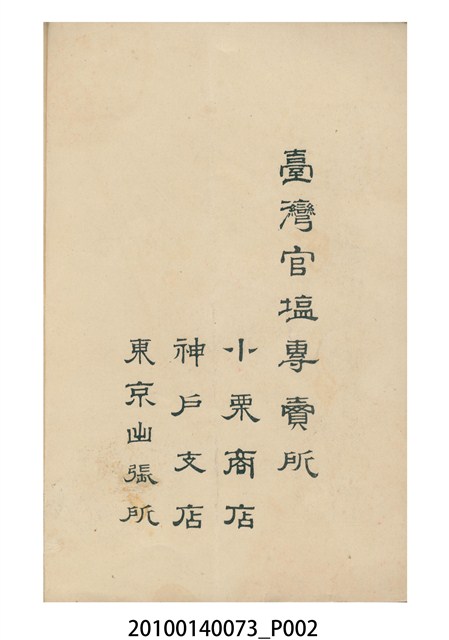 臺灣官塩專賣所
小栗商店
神戶支店
東京出張所
20100140073_P002